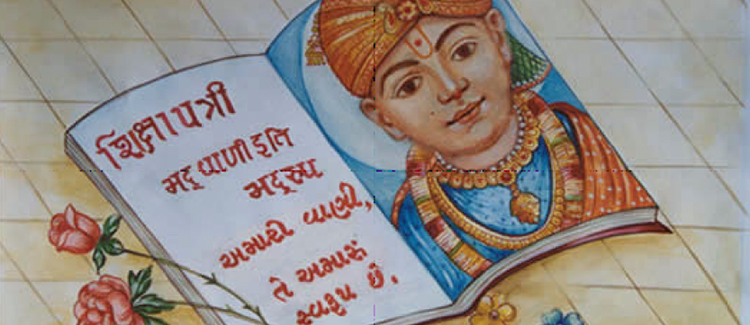 શિક્ષાપત્રી
મદ્ વાણી ઇતિ
મદ્રુપ
અમારી વાણી,
તે અમારું
સ્વરૂપ છે.